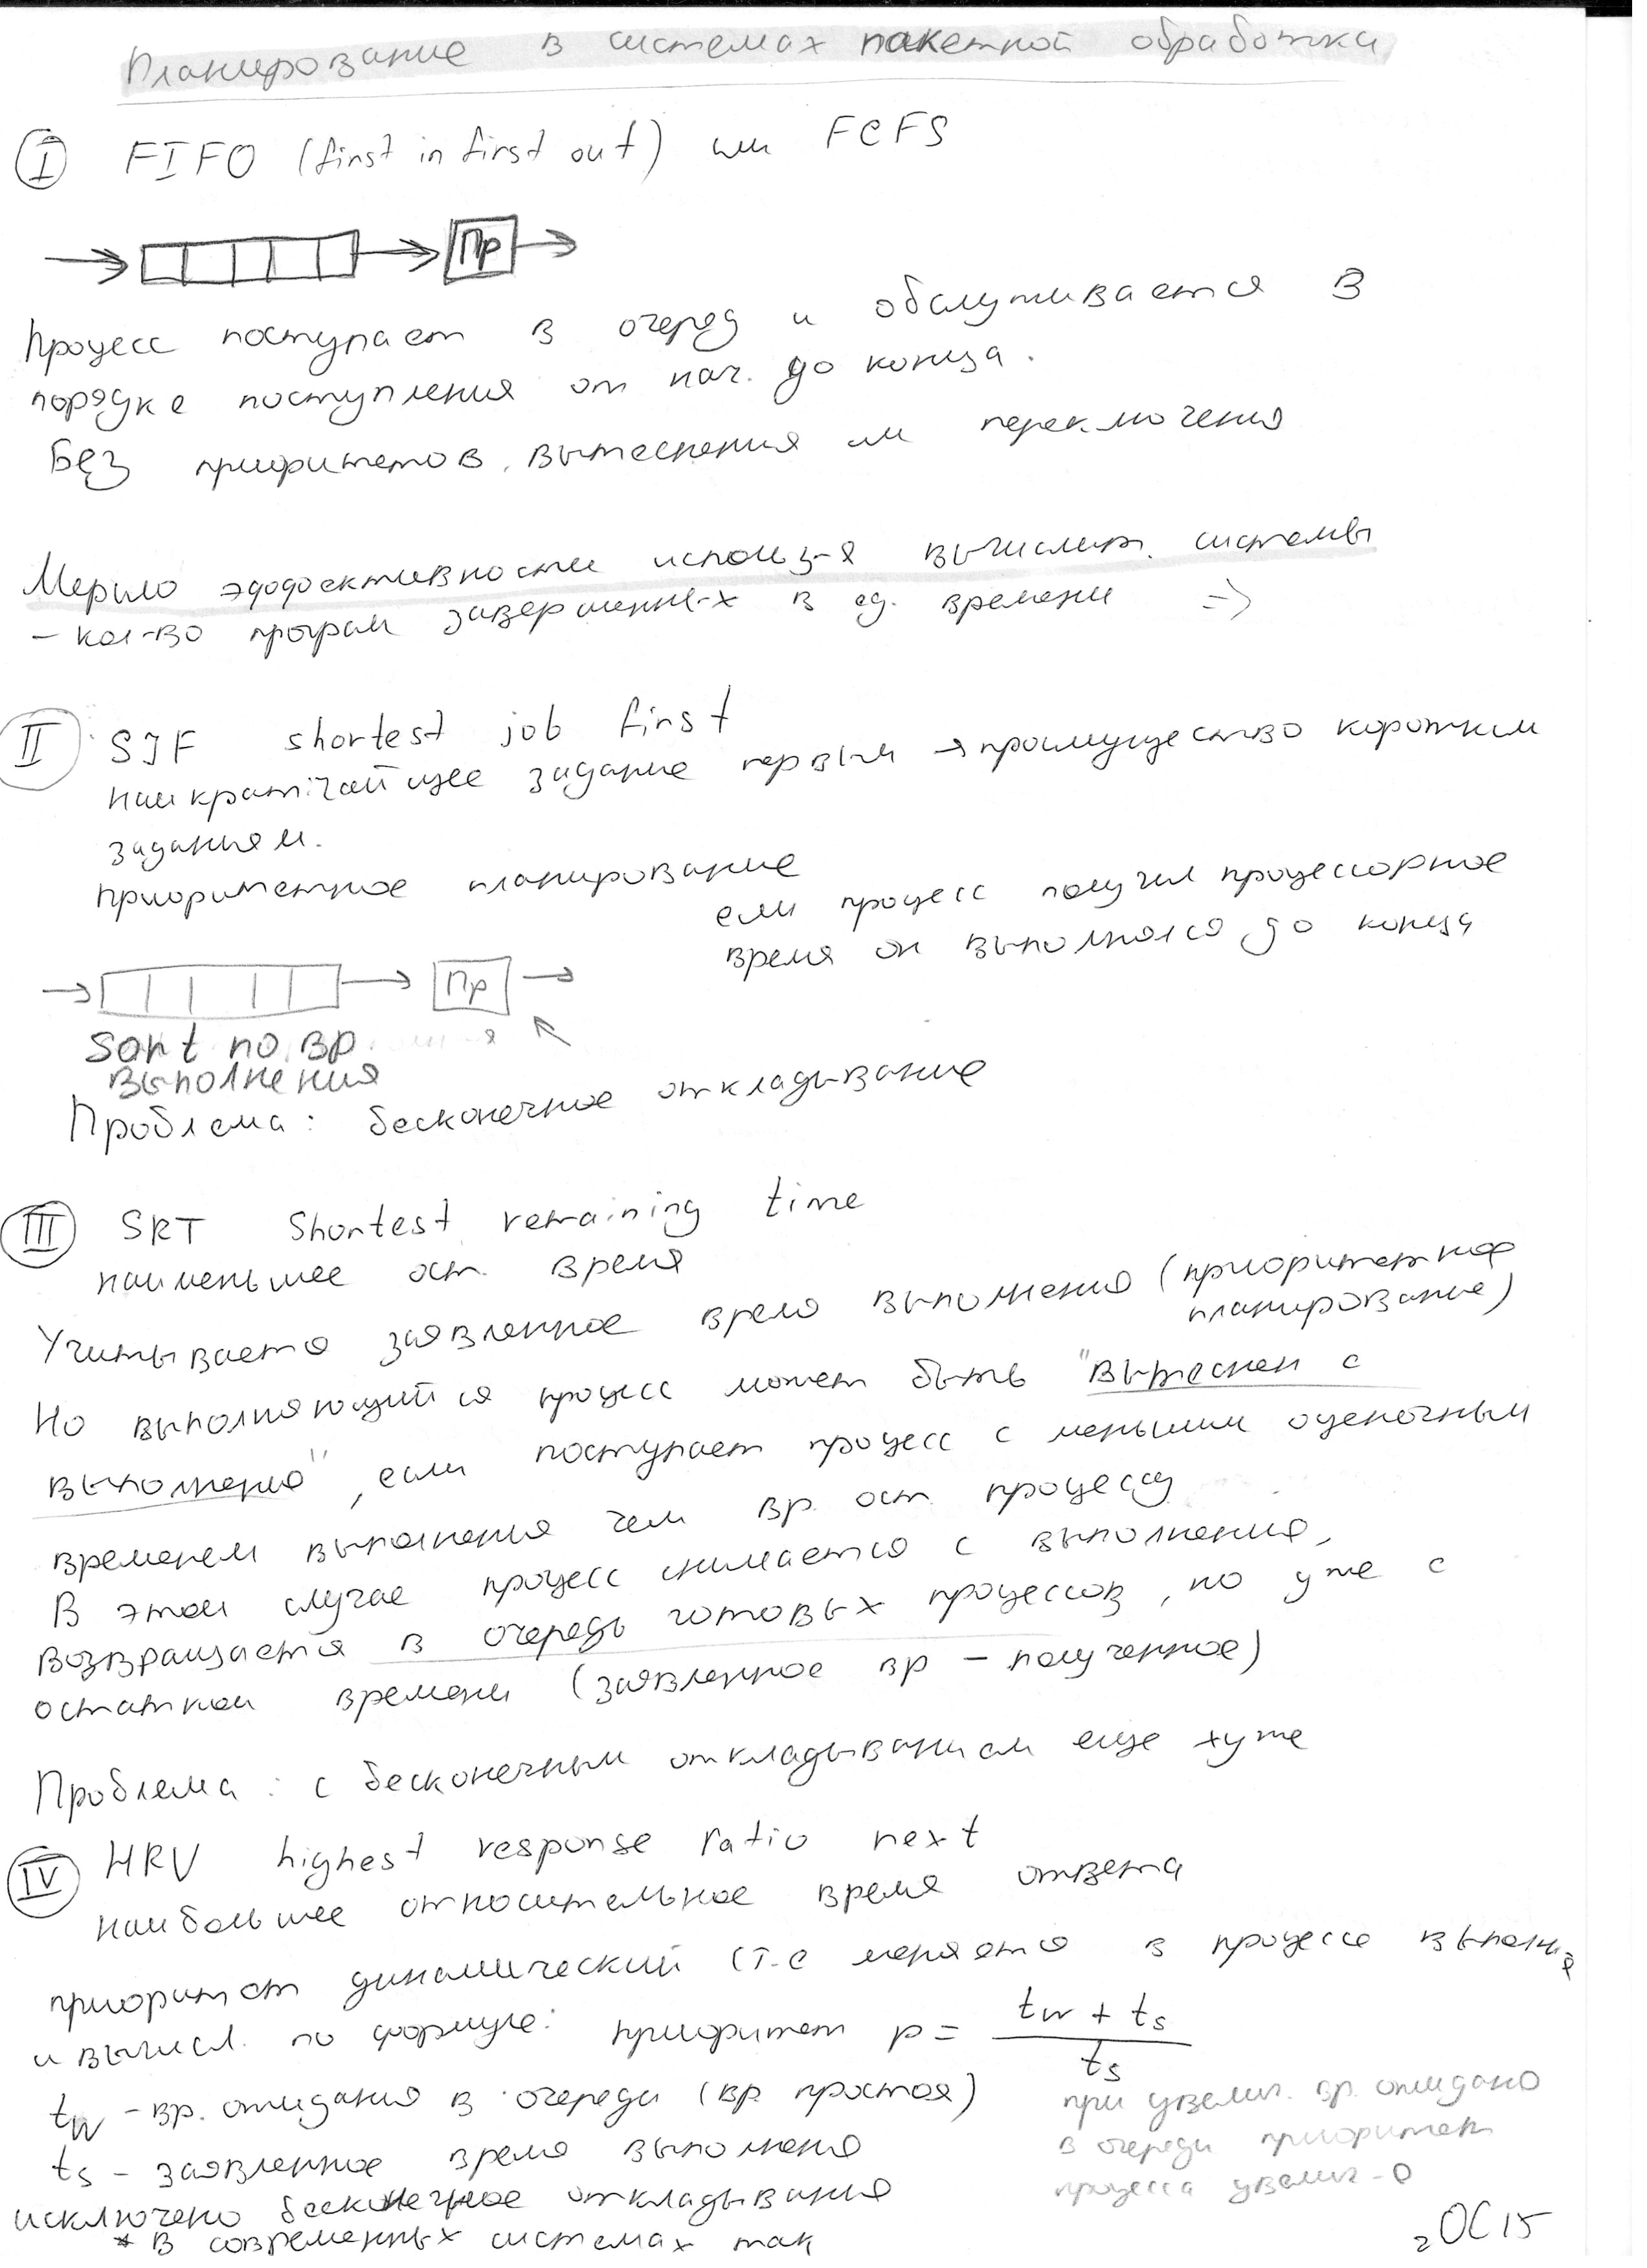 Планирование в системах пакетной обработки
I FIFO (first in first out) или FCFS
Пр
Процесс поступает в очеред и обслуживается в
порядке поступления от нач. до конца.
Без приоритетов, вытеснения и переключения
Мерило эффективности использ-я вычислит. системы
- кол-во програм завершенных в ед. времени =>
II SJF shortest job first
наикратчайшее задание первым → преимущество коротким
заданиям.
приоритетное планирование
если процесс получил процессорное
время он выполнялся до конца
Пр
Sort по вр.
выполнения
Проблема: бесконечное откладывание
III SRT Shortest remaining time
наименьшее ост. время
Учитывается заявленное время выполнения (приоритетное
планирование)
Но выполняющийся процесс может быть "вытеснен с
выполнения", если поступает процесс с меньшим оценочным
временем выполнения чем вр. ост. процессу
В этом случае процесс снимается с выполнения,
возвращается в очередь готовых процессов, но уже с
остатком времени (заявленное вр - полученное)
Проблема: с бесконечным откладыванием еще хуже
IV HRV highest response ratio next
наибольшее относительное время ответа
приоритет динамический (т.е меняется в процессе выполн-я
и вычисл. по формуле: приоритет p = (tw + ts) / ts
tw - вр. ожидания в очереди (вр. простоя)
ts - заявленное время выполнения
при увелич. вр. ожидания
в очереди приоритет
процесса увелич-я
исключено бесконечное откладывания
* в современных системах так
2 ОС15